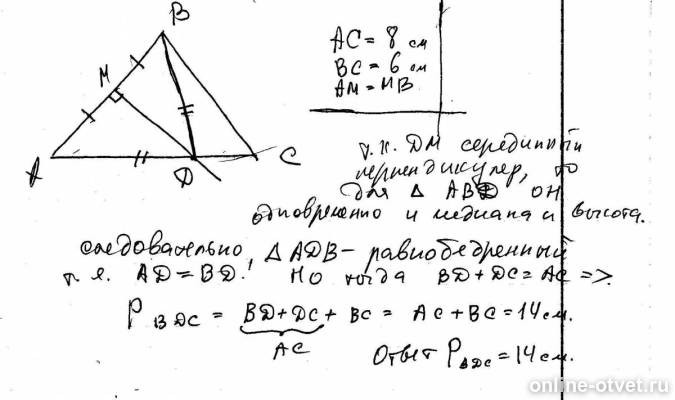 B
M
A
D
C
AC = 8 см
BC = 6 см
AM = MB
т.к. DM серединный
перпендикуляр, то
для △ ABD он
одновременно и медиана и высота.
следовательно, △ ADB – равнобедренный
т.е. AD = BD. Но тогда BD + DC = AC =>
P BDC = BD + DC + BC = AC + BC = 14 см.
AC
Ответ P BDC = 14 см.
online-otvet.ru